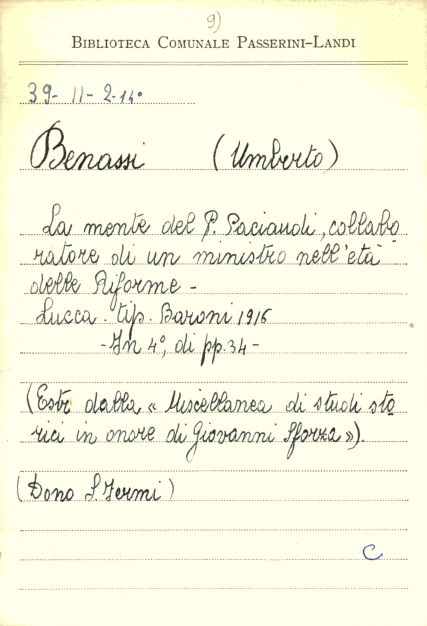 9)
BIBLIOTECA COMUNALE PASSERINI-LANDI
39- II- 2-14°
Benassi (Umberto)
La mente del P. Paciaudi, collabo
ratore di un ministro nell'età
delle Riforme -
Lucca. tip. Baroni 1916
- In 4°, di pp. 34 -
(Estr dalla « Miscellanea di studi sto
rici in onore di Giovanni Sforza »).
(Dono S. Fermi)
C